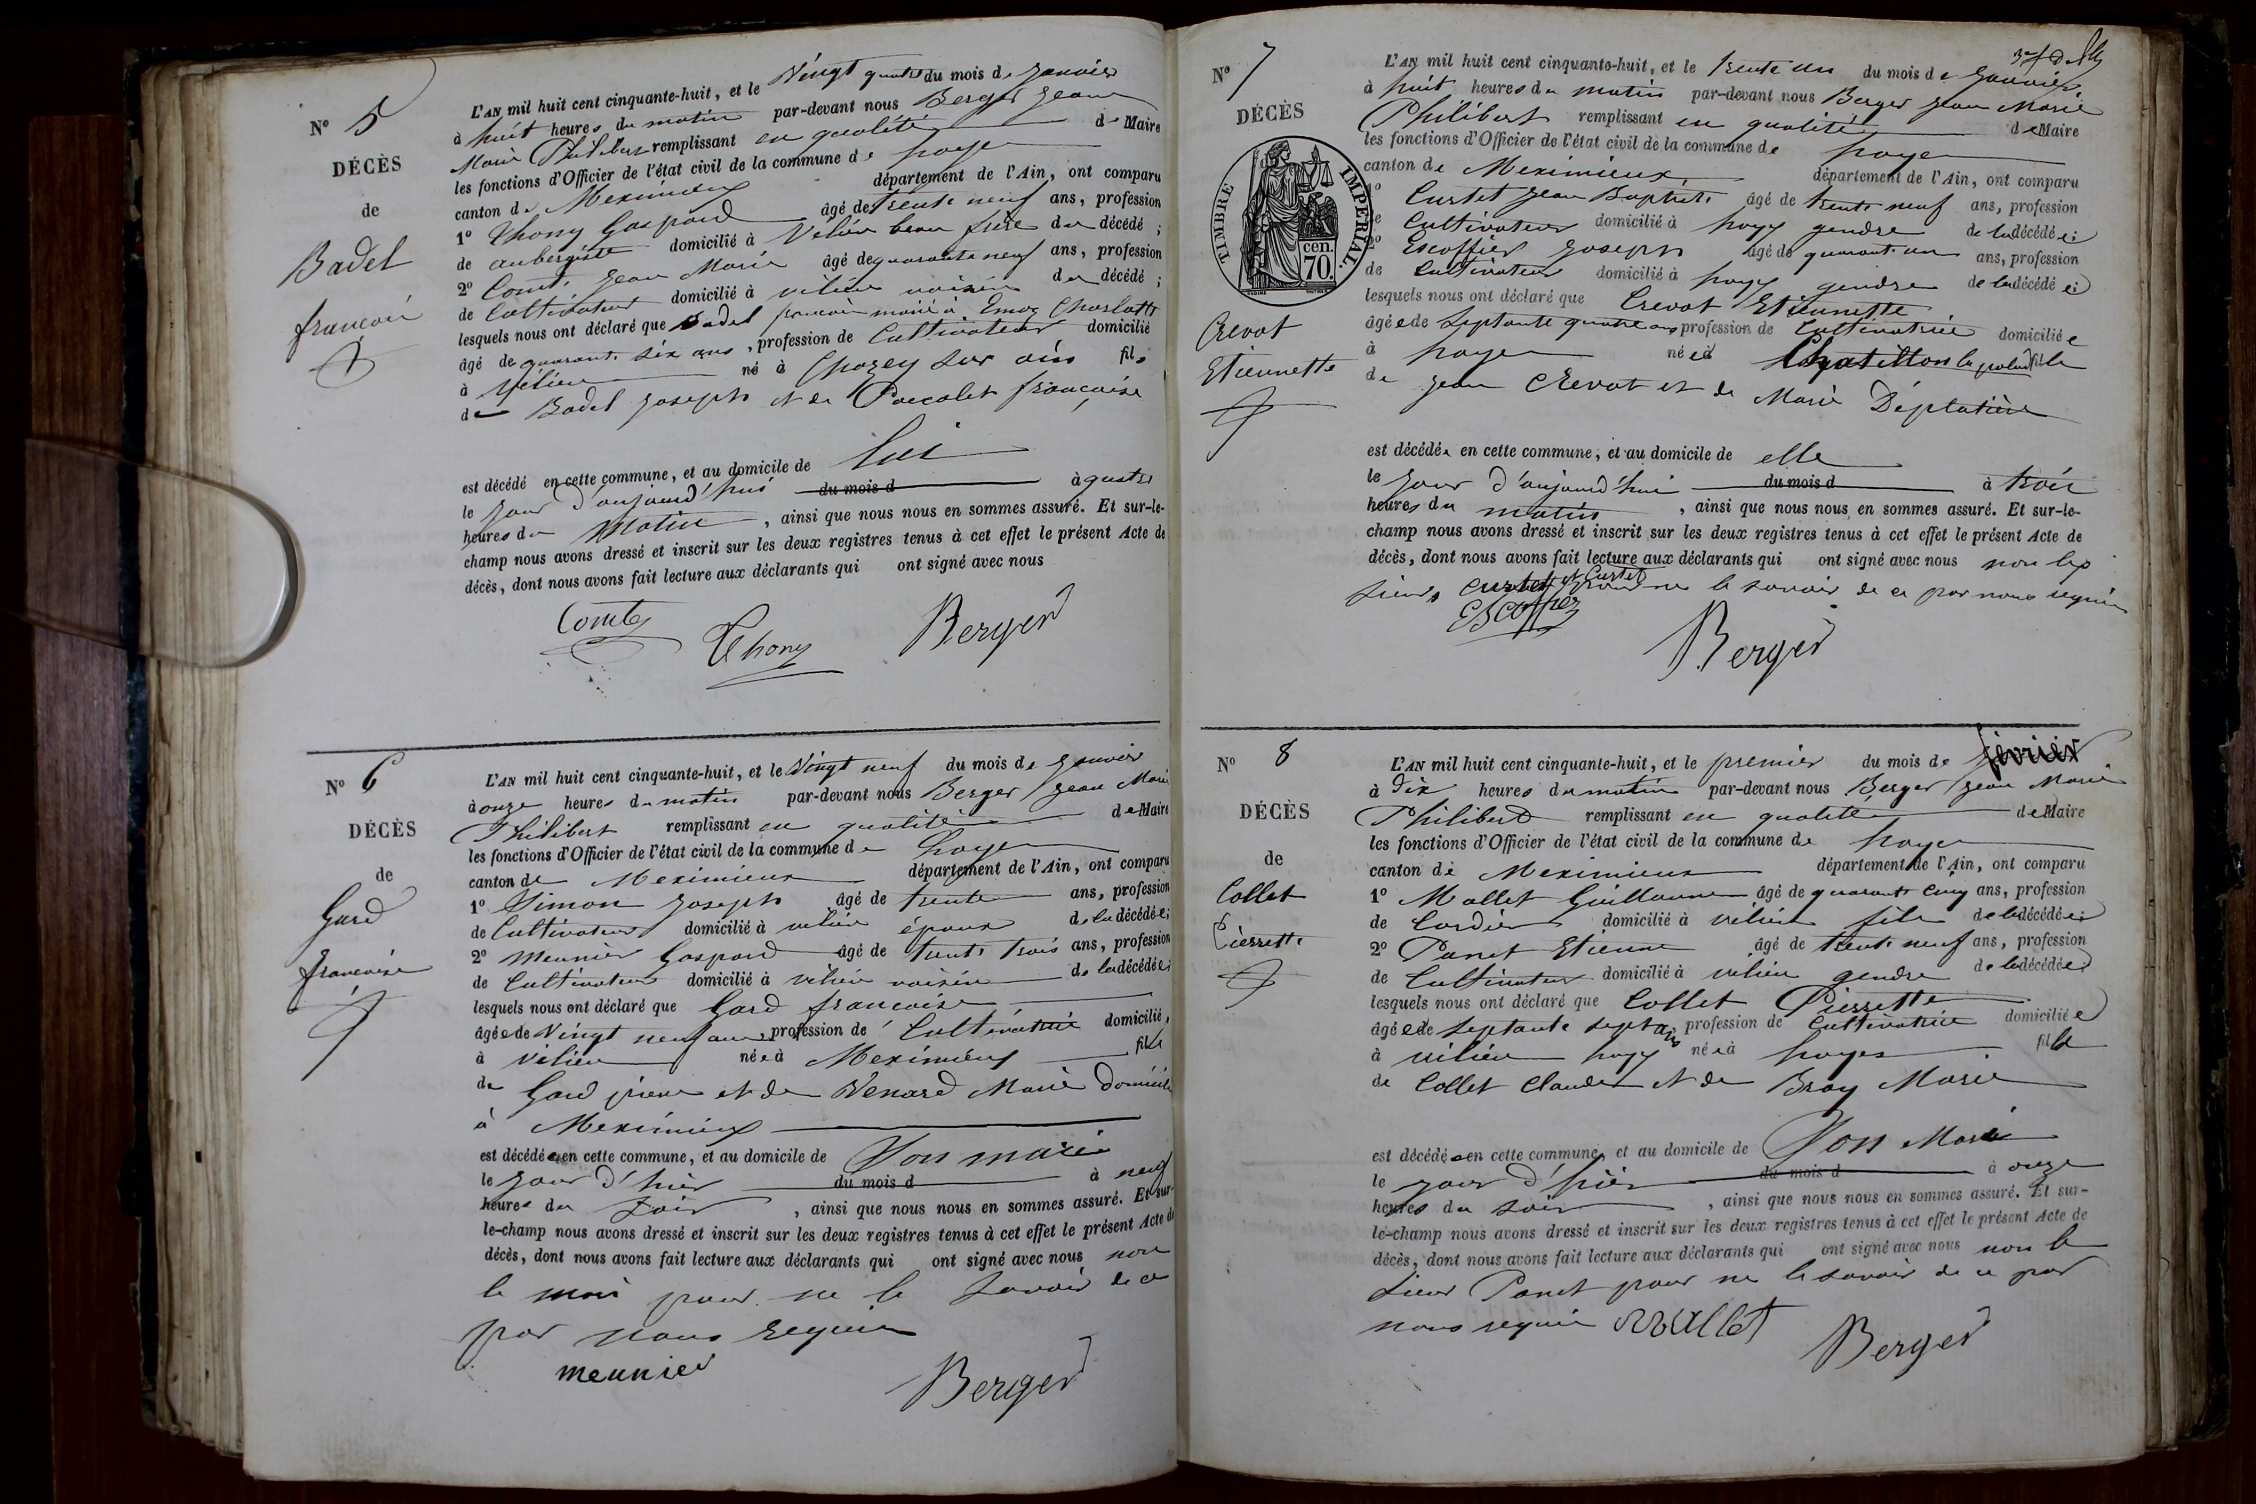 N° 5
DÉCÈS
de
Badel
françois
L'AN mil huit cent cinquante-huit, et le Vingt quatre du mois de Janvier
à huit heures du matin par-devant nous Berger Jean
Marie Philibert remplissant en qualité de Maire
les fonctions d'Officier de l'état civil de la commune de
canton de Meximieux département de l'Ain, ont comparu
1° Thony Gaspard âgé de trente neuf ans, profession
de aubergiste domicilié à Vilieu beau frère du décédé ;
2° Comte Jean Marie âgé de quarante neuf ans, profession
de Cultivateur domicilié à vilieu voisin du décédé ;
lesquels nous ont déclaré que Badel françois marié à Charlotte
âgé de quarante six ans, profession de Cultivateur domicilié
à Vilieu né à Chazey sur ain fils
de Badel Joseph et de françoise
est décédé en cette commune, et au domicile de lui
le jour d'aujourd'hui du mois d à quatre
heures du matin, ainsi que nous nous en sommes assuré. Et sur-le-
champ nous avons dressé et inscrit sur les deux registres tenus à cet effet le présent Acte de
décès, dont nous avons fait lecture aux déclarants qui ont signé avec nous
Comte Thony Berger
N° 6
DÉCÈS
de
Gard
françoise
L'AN mil huit cent cinquante-huit, et le Vingt neuf du mois de Janvier
à onze heures du matin par-devant nous Berger Jean Marie
Philibert remplissant en qualité de Maire
les fonctions d'Officier de l'état civil de la commune de
canton de Meximieux département de l'Ain, ont comparu
1° Simon Joseph âgé de trente ans, profession
de Cultivateur domicilié à vilieu époux de la décédée ;
2° Meunier Gaspard âgé de trente trois ans, profession
de Cultivateur domicilié à vilieu voisin de la décédée ;
lesquels nous ont déclaré que Gard françoise
âgée de Vingt neuf ans, profession de Cultivatrice domiciliée
à vilieu née à Meximieux fille
de Gard pierre et de Venard Marie Domiciliés
à Meximieux
est décédée en cette commune, et au domicile de Son mari
le jour d'hier du mois d à neuf
heures du soir, ainsi que nous nous en sommes assuré. Et sur-
le-champ nous avons dressé et inscrit sur les deux registres tenus à cet effet le présent Acte de
décès, dont nous avons fait lecture aux déclarants qui ont signé avec nous non
le mari pour ne le savoir de ce
par nous requis
meunier Berger
N° 7
DÉCÈS
TIMBRE IMPÉRIAL.
cen.
70.
Crevat
Etiennette
L'AN mil huit cent cinquante-huit, et le trente un du mois de Janvier
à huit heures du matin par-devant nous Berger Jean Marie
Philibert remplissant en qualité de Maire
les fonctions d'Officier de l'état civil de la commune de
canton de Meximieux, département de l'Ain, ont comparu
1° Curtet Jean Baptiste âgé de trente neuf ans, profession
de Cultivateur domicilié à gendre de la décédée ;
2° Escoffier Joseph âgé de quarante un ans, profession
de Cultivateur domicilié à gendre de la décédée ;
lesquels nous ont déclaré que Crevat Etiennette
âgée de septante quatre ans profession de Cultivatrice domiciliée
à née à Chatillon la palud fille
de Jean Crevat et de Marie Déplatière
est décédée en cette commune, et au domicile de elle
le jour d'aujourd'hui du mois d à trois
heures du matin, ainsi que nous nous en sommes assuré. Et sur-le-
champ nous avons dressé et inscrit sur les deux registres tenus à cet effet le présent Acte de
décès, dont nous avons fait lecture aux déclarants qui ont signé avec nous non
sieur Curtet pour ne le savoir de ce par nous requis
Escoffier
Berger
N° 8
DÉCÈS
de
Collet
Pierrette
L'AN mil huit cent cinquante-huit, et le premier du mois de février
à dix heures du matin par-devant nous Berger Jean Marie
Philibert remplissant en qualité de Maire
les fonctions d'Officier de l'état civil de la commune de
canton de Meximieux département de l'Ain, ont comparu
1° Mallet Guillaume âgé de quarante cinq ans, profession
de Cordier domicilié à vilieu fils de la décédée ;
2° Panet Etienne âgé de trente neuf ans, profession
de Cultivateur domicilié à vilieu gendre de la décédée ;
lesquels nous ont déclaré que Collet Pierrette
âgée de septante sept ans profession de Cultivatrice domiciliée
à vilieu née à fille
de Collet Claude et de Bray Marie
est décédée en cette commune, et au domicile de Son Mari
le jour d'hier du mois d à onze
heures du soir, ainsi que nous nous en sommes assuré. Et sur-
le-champ nous avons dressé et inscrit sur les deux registres tenus à cet effet le présent Acte de
décès, dont nous avons fait lecture aux déclarants qui ont signé avec nous non le
sieur Panet pour ne le savoir de ce par
nous requis Mallet Berger